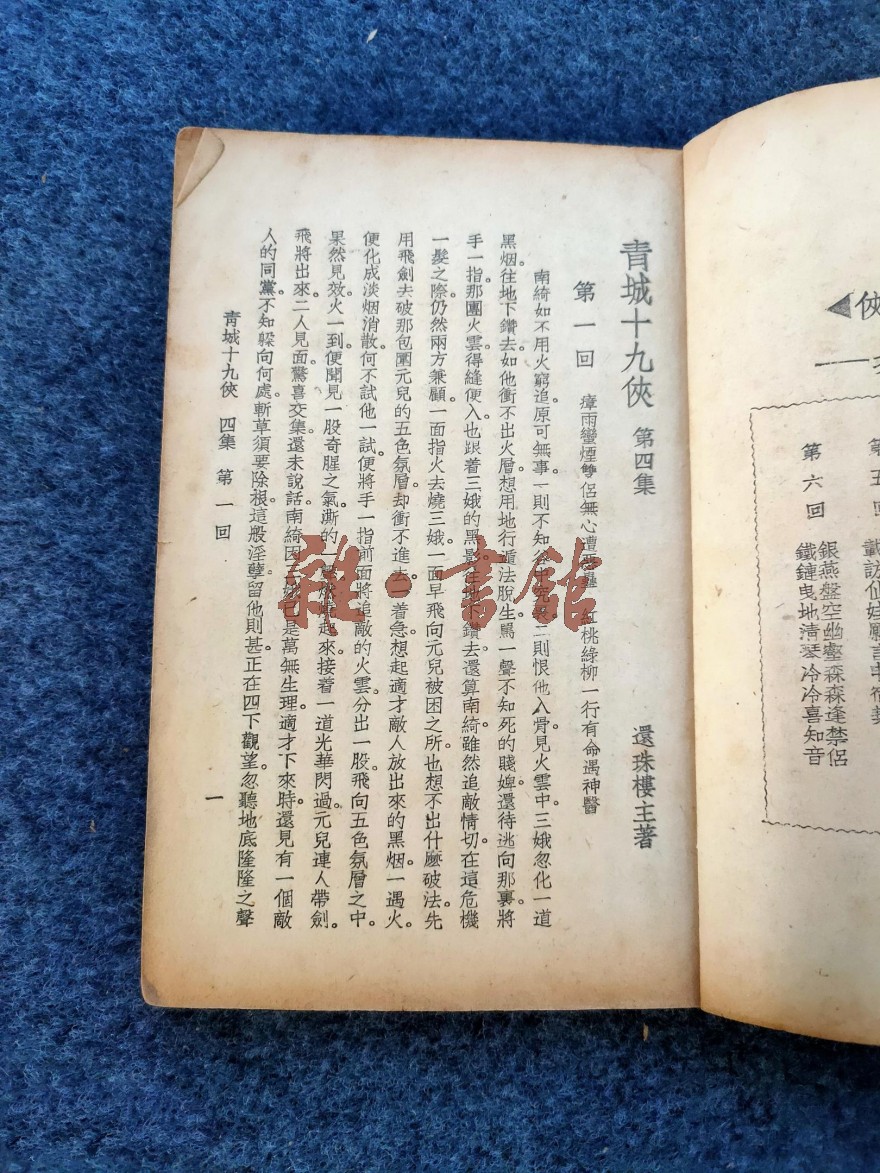 青城十九俠 第四集
還珠樓主著
第一回 瘴雨蠻煙雙侶無心遭惡蠱 紅桃綠柳一行有命遇神醫
南綺如不用火窮追。原可無事。一則不知谷中究竟。二則恨他入骨。見火雲中三娥忽化一道
黑烟。往地下鑽去。如他衝不出火層。想用地行遁法脫生。罵一聲不知死的賤婢。還待逃向那裏。將
手一指。那團火雲得縫便入。也跟着三娥的黑影。往地下鑽去。還算南綺雖然追敵情切。在這危機
一髮之際。仍然兩方兼顧。一面指火去燒三娥。一面早飛向元兒被困之所。也想不出什麼破法。先
用飛劍去破那包圍元兒的五色氛層。却衝不進去。一着急。想起適才敵人放出來的黑烟。一遇火。
便化成淡烟消散。何不試他一試。便將手一指。前面將追敵的火雲。分出一股。飛向五色氛層之中。
果然見效。火一到。便聞見一股奇腥之氣。澌的一聲。起來。接着一道光華閃過。元兒連人帶劍。
飛將出來。二人見面。驚喜交集。還未說話。南綺因三娥已是萬無生理。適才下來時。還見有一個敵
人的同黨。不知躱向何處。斬草須要除根。這般淫孽。留他則甚。正在四下觀望。忽聽地底隆隆之聲
青城十九俠 四集 第一回
一
俠
第六回 銀燕盤空幽壑森森逢禁侶
鐵鏈曳地清琴冷冷喜知音
雜·書館